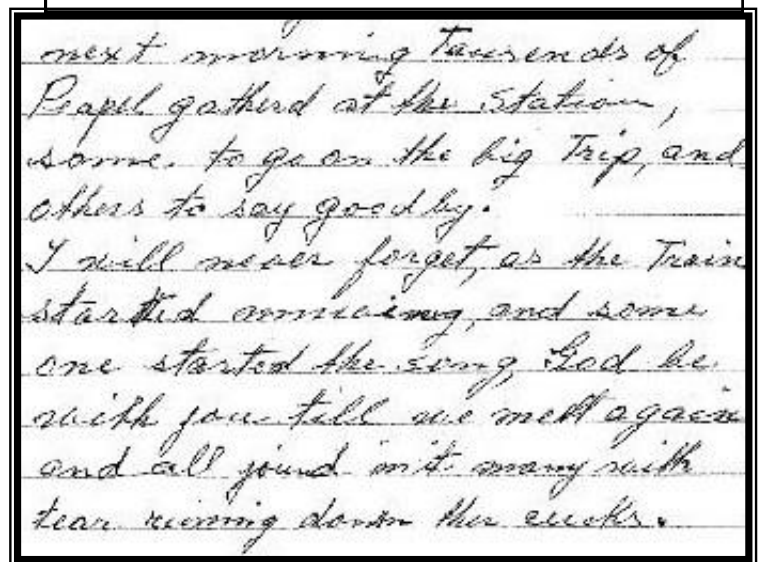 next morning Tausends of
Peapel gatherd at the Station,
some. to go on the big Trip, and
others to say good by.
I will never forget, as the Train
started and some
one started the song, God be
with you till we mett again
and all joind in it many with
tear running down ther cheeks.